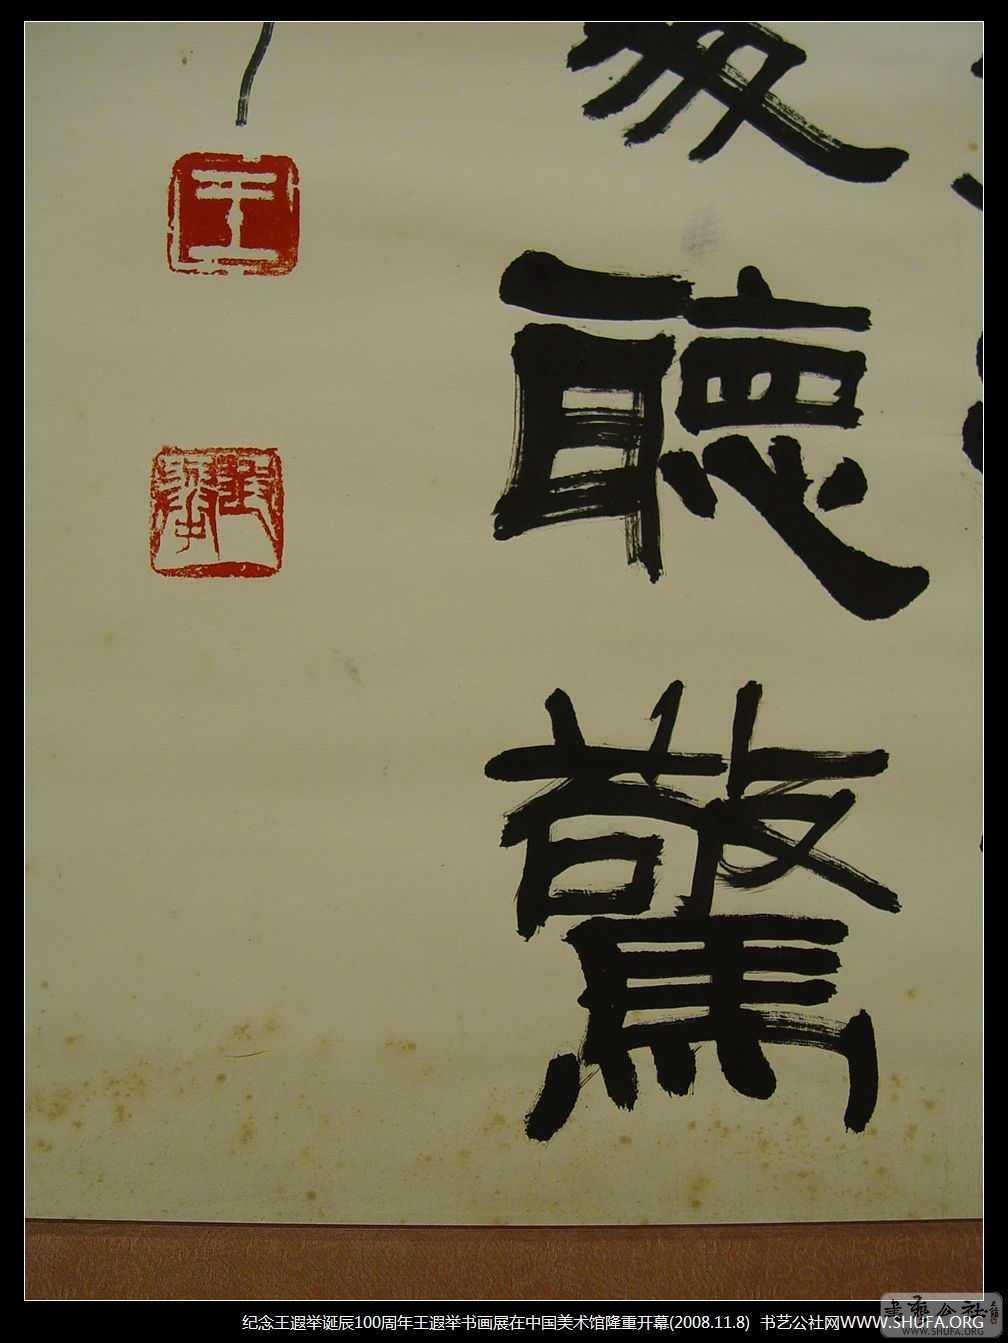 聽驚
王
遐舉
纪念王遐举诞辰100周年王遐举书画展在中国美术馆隆重开幕(2008.11.8) 书艺公社网WWW.SHUFA.ORG
書藝公社
WWW.SHUFA.ORG